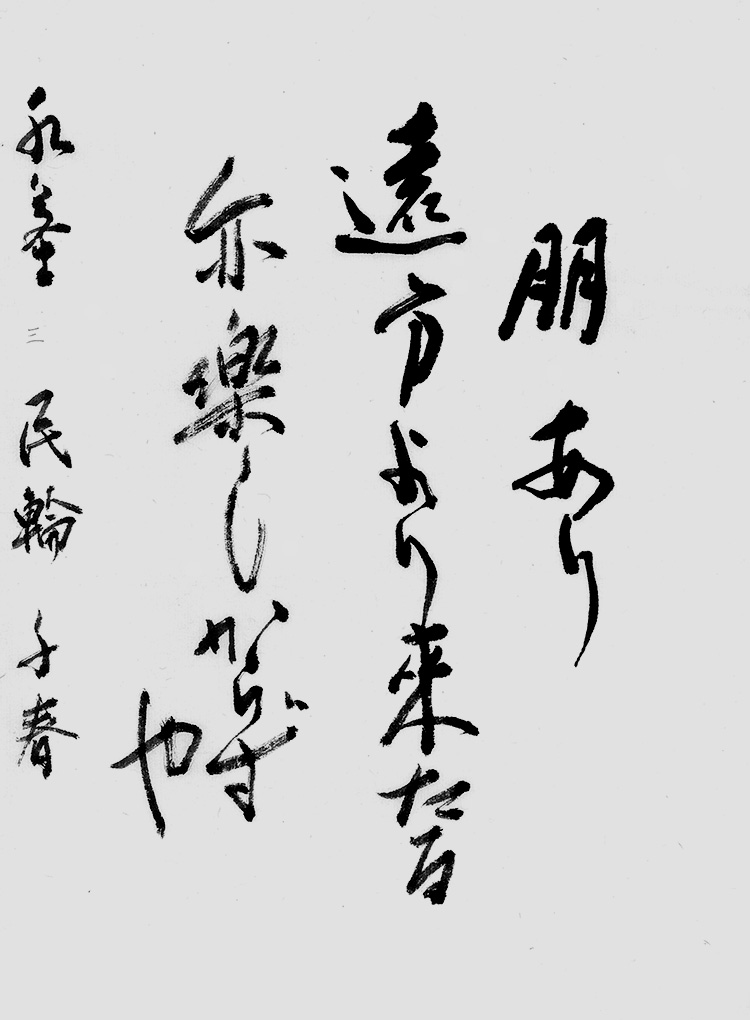 朋あり
遠方より來たる
亦楽しからずや
三 民輪 千春